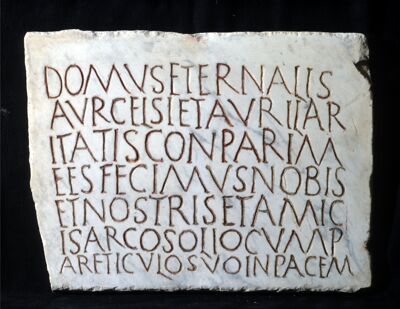 DOMVSETERNALIS
AVRCELSIETAVRILAR
ITATISCONPARIM
EESFECIMVSNOBIS
ETNOSTRISETAMIC
ISARCOSOLIOCVMP
ARETICVLOSVOINPACEM